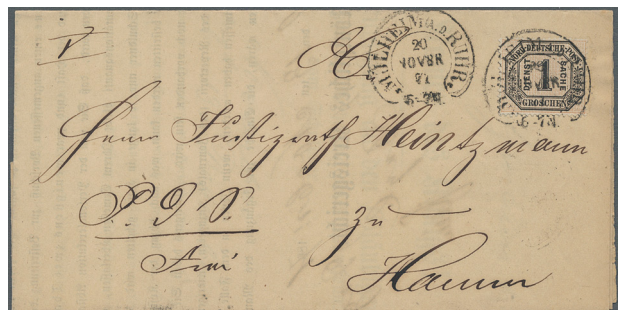 MÜLHEIM A. D. RUHR.
20
NOVBR
71
5-7N
NORDDEUTSCHE POST
DIENST SACHE
1
GROSCHEN
5-7N
Herrn Justizrath Heintzmann
P. D. S. zu
Frei Hamm